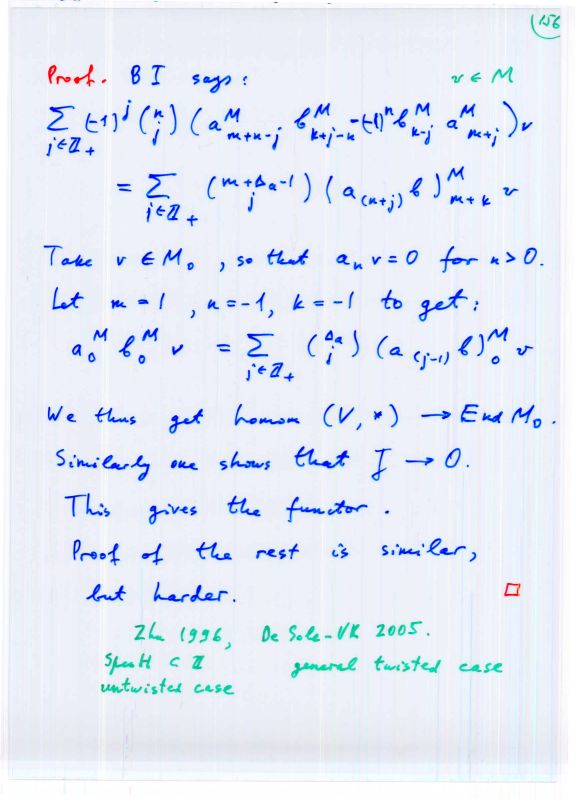 156
Proof. BI says: v ∈ M
∑_{j∈ℤ₊} (-1)^j (n choose j) (a^M_{m+n-j} b^M_{k+j-n} -(-1)^n b^M_{k-j} a^M_{m+j}) v
= ∑_{j∈ℤ₊} (m+Δ_a-1 choose j) (a_{(n+j)} b)^M_{m+k} v
Take v ∈ M₀, so that a_n v = 0 for n > 0.
Let m = 1, n = -1, k = -1 to get:
a₀^M b₀^M v = ∑_{j∈ℤ₊} (Δ_a choose j) (a_{(j-1)} b)₀^M v
We thus get homom (V, *) → End M₀.
Similarly one shows that J → 0.
This gives the functor.
Proof of the rest is similar,
but harder. □
Zhu 1996, De Sole-VK 2005.
Spec H ⊂ ℤ general twisted case
untwisted case